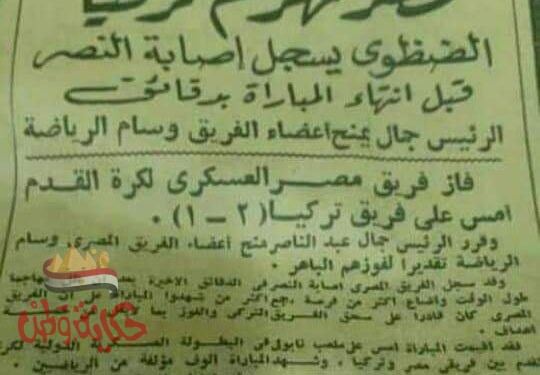 مصر تهزم تركيا
الضظوى يسجل إصابة النصر
قبل انتهاء المباراة بدقائق
الرئيس جمال يمنح أعضاء الفريق وسام الرياضة
فاز فريق مصر العسكرى لكرة القدم
أمس على فريق تركيا (٢ – ١) ٠
وقرر الرئيس جمال عبد الناصر منح أعضاء الفريق المصرى وسام
الرياضة تقديرا لفوزهم الباهر ٠
وقد سجل الفريق المصرى اصابة النصر فى الدقائق الاخيرة بعد
طول الوقت واضاع اكثر من فرصة اكثر من شهدوا المباراة على أن الفريق
المصرى كان قادرا على سحق الفريق التركى والفوز بما لا
أهداف ٠
فقد اقيمت المباراة امس على ملعب نابولى فى البطولة الدولية لكرة
القدم بين فريقى مصر وتركيا ٠ وشهد المباراة الوف مؤلفة من الرياضيين ٠
حكاية وطن